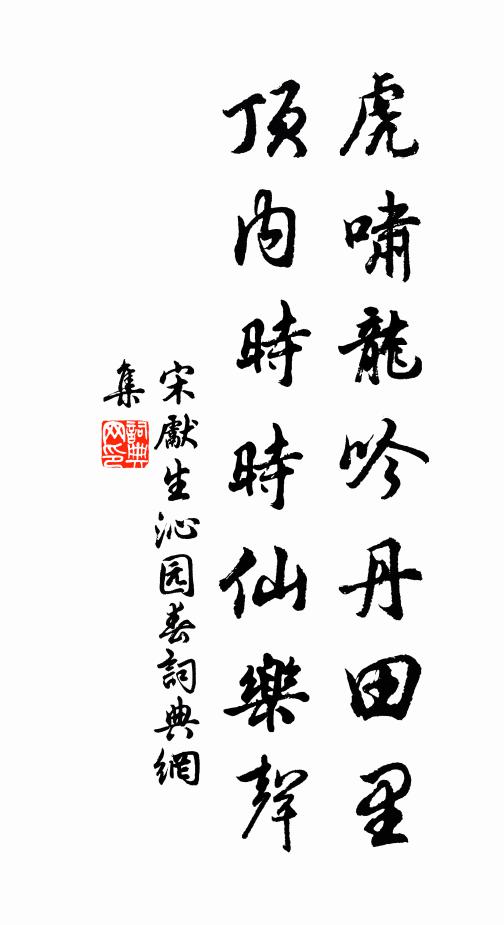 虎嘯龍吟丹田里
頂内時時仙樂聲
宋獻生沁园春詞典網
集
詞典網印